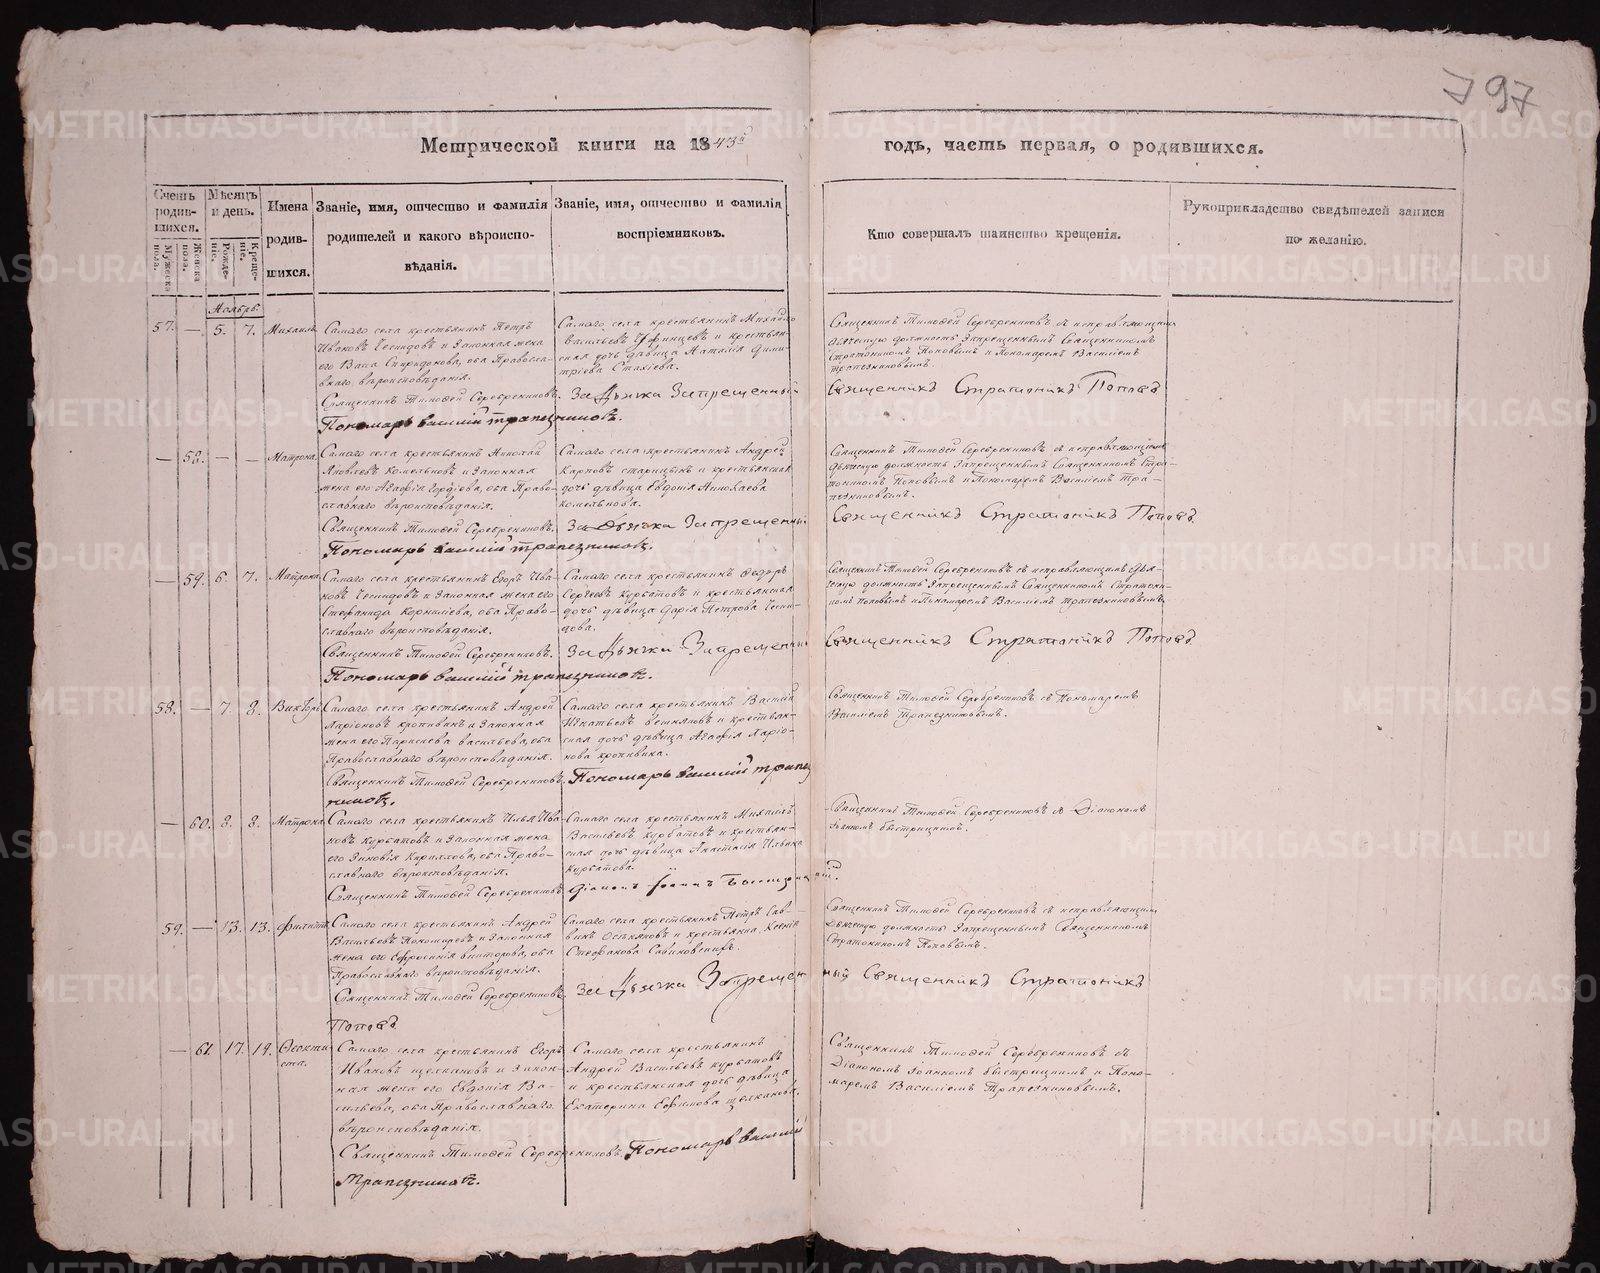 797
Метрической книги на 1843й годъ, часть первая, о родившихся.
Счетъ родив-шихся.
Мѣсяцъ и день.
Имена родив-шихся.
Званіе, имя, отчество и фамилія родителей и какого вѣроиспо-вѣданія.
Званіе, имя, отчество и фамилія воспріемниковъ.
Кто совершалъ таинство крещенія.
Рукоприкладство свидѣтелей записи по желанію.
Мужеска пола.
Женска пола.
Рожде-ніе.
Креще-ніе.
Ноябрь
57. — 5. 7. Михаилъ
Самаго села крестьянинъ Петръ
Ивановъ и законная жена
его Васа Спиридонова, оба Правосла-
внаго вѣроисповѣданія.
Священникъ Тимофей Серебренниковъ.
Пономарь Василий Трапезниковъ.
Самаго села крестьянинъ Михайло
Васильевъ и крестьян-
ская дочь дѣвица Наталія Дими-
тріева
За Дьячка Запрещенный
Священникъ Тимофей Серебренниковъ съ исправляющимъ
дьяческую должность Запрещеннымъ Священникомъ
Стратоникомъ Поповымъ и Пономаремъ Василіемъ
Трапезниковымъ.
Священникъ Стратоникъ Поповъ
— 58. — — Матрона
Самаго села крестьянинъ Николай
Яковлевъ и законная
жена его Агафія оба Право-
славнаго вѣроисповѣданія.
Священникъ Тимофей Серебренниковъ.
Пономарь Василий Трапезниковъ.
Самаго села крестьянинъ Андрей
Карповъ и крестьянская
дочь дѣвица Евдокія Николаева
За Дьячка Запрещенный
Священникъ Тимофей Серебренниковъ съ исправляющимъ
дьяческую должность Запрещеннымъ Священникомъ Стра-
тоникомъ Поповымъ и Пономаремъ Василіемъ Тра-
пезниковымъ.
Священникъ Стратоникъ Поповъ
— 59. 6. 7. Матрона
Самаго села крестьянинъ Егоръ Ива-
новъ и законная жена его
Стефанида Корнилева, оба Право-
славнаго вѣроисповѣданія.
Священникъ Тимофей Серебренниковъ.
Пономарь Василий Трапезниковъ.
Самаго села крестьянинъ Федоръ
Сергеевъ Курбатовъ и крестьянская
дочь дѣвица Дарія Петрова
За Дьячка Запрещенный
Священникъ Тимофей Серебренниковъ съ исправляющимъ дья-
ческую должность Запрещеннымъ Священникомъ Стратони-
комъ Поповымъ и Пономаремъ Василіемъ Трапезниковымъ.
Священникъ Стратоникъ Поповъ
58. — 7. 8. Викторъ
Самаго села крестьянинъ Андрей
Ларіоновъ и законная
жена его Васильева, оба
Православнаго вѣроисповѣданія.
Священникъ Тимофей Серебренниковъ.
Самаго села крестьянинъ Василій
Игнатьевъ и крестьян-
ская дочь дѣвица Агафія Ларіо-
нова
Пономарь Василий Трапез
никовъ.
Священникъ Тимофей Серебренниковъ съ Пономаремъ
Василіемъ Трапезниковымъ.
— 60. 8. 8. Матрона
Самаго села крестьянинъ Илья Ива-
новъ Курбатовъ и законная жена
его Зиновія Кирилова, оба Право-
славнаго вѣроисповѣданія.
Священникъ Тимофей Серебренниковъ
Самаго села крестьянинъ Михаилъ
Васильевъ Курбатовъ и крестьян-
ская дочь дѣвица Анастасія Ильина
Курбатова.
Діаконъ Іоаннъ Быстрицкий.
Священникъ Тимофей Серебренниковъ съ Діакономъ
Іоанномъ Быстрицкимъ.
59. — 13. 13. Филиппъ
Самаго села крестьянинъ Андрей
Васильевъ Пономаревъ и законная
жена его Ефросинія Викторова, оба
Православнаго вѣроисповѣданія.
Священникъ Тимофей Серебренниковъ.
Самаго села крестьянинъ Петръ Сав-
винъ и крестьянка Ксенія
Стефанова
За Дьячка Запрещенный Священникъ Стратоникъ
Поповъ
Священникъ Тимофей Серебренниковъ съ исправляющимъ
Дьяческую должность Запрещеннымъ Священникомъ
Стратоникомъ Поповымъ.
— 61. 17. 19. Феокти-
ста.
Самаго села крестьянинъ Егоръ
Ивановъ Щелкановъ и закон-
ная жена его Евдокія Ва-
сильева, оба Православнаго
вѣроисповѣданія.
Священникъ Тимофей Серебренниковъ
Самаго села крестьянинъ
Андрей Васильевъ Курбатовъ
и крестьянская дочь дѣвица
Екатерина Ефимова Щелканова.
Пономарь Василий
Трапезниковъ.
Священникъ Тимофей Серебренниковъ съ
Діакономъ Іоанномъ Быстрицкимъ и Поно-
маремъ Василіемъ Трапезниковымъ.
METRIKI.GASO-URAL.RU